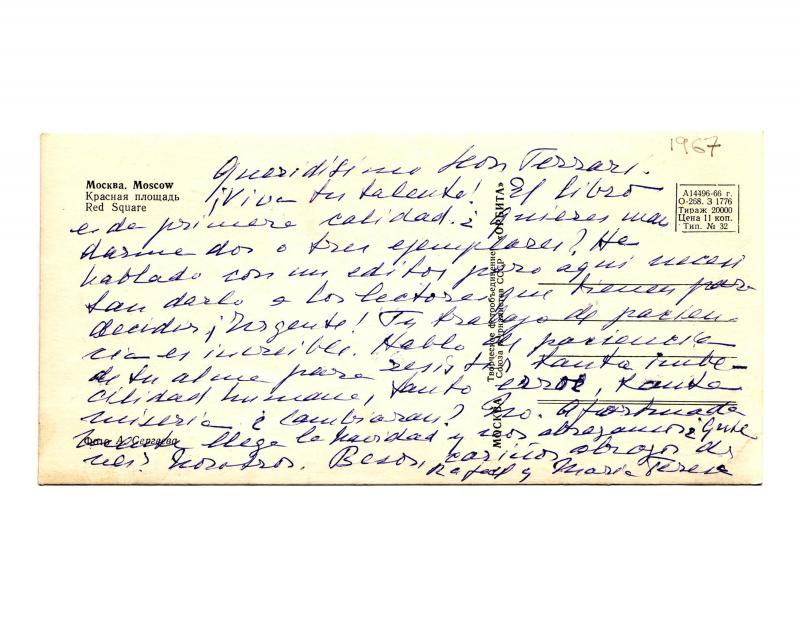 1967
Москва. Moscow
Красная площадь
Red Square
А14496-66 г.
О-268. З 1776
Тираж 20000
Цена 11 коп.
Тип. № 32
Queridísimo León Ferrari.
¡Viva tu talento! El libro
es de primera calidad. ¿Quieres man
darme dos o tres ejemplares? He
hablado con un editor pero aquí necesi
tan darlo a los lectores que tienen para
decidir. ¡Urgente! Tu trabajo de pacien
cia es increíble. Hablo de paciencia
de tu alma para resistir tanta imbe-
cilidad humana, tanto error, tanta
miseria ¿Cambiaran? No. Afortunada
llega la Navidad y nos abrazamos ¿Quie
nes? Nosotros. Besos, cariños, abrazos de
Rafael y María Teresa
Фото А. Сергеева
МОСКВА «ОРБИТА»
Творческое фотообъединение
Союза журналистов СССР